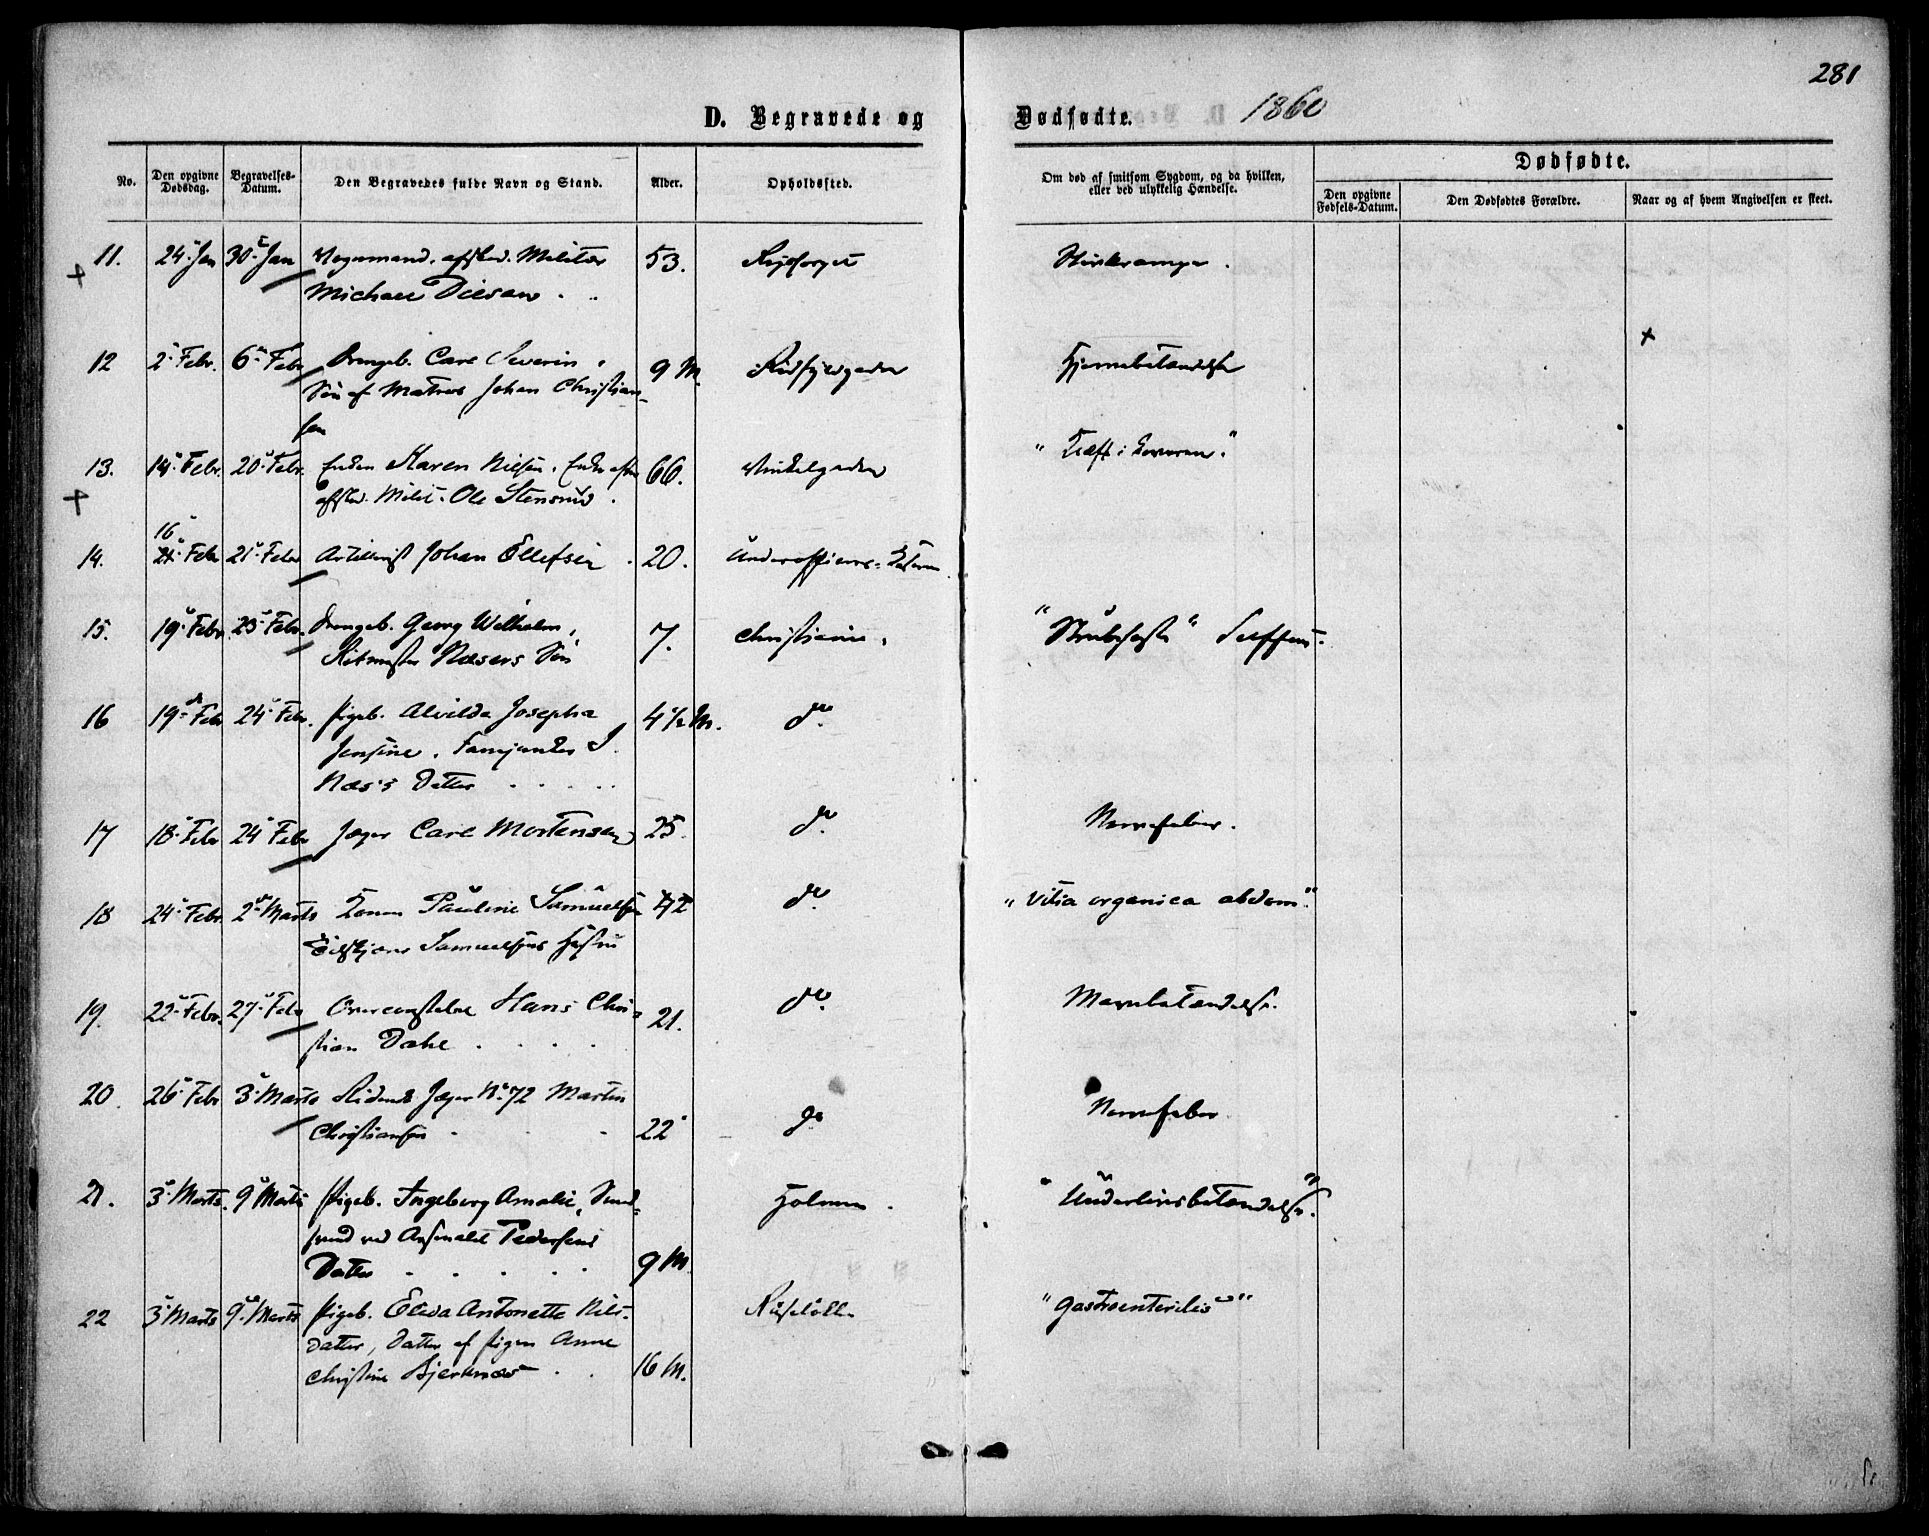 281
D. Begravede og Dødfødte. 1860
No.
Den opgivne Dødsdag.
Begravelses-Datum.
Den Begravedes fulde Navn og Stand.
Alder.
Opholdssted.
Om død af smitsom Sygdom, og da hvilken,
eller ved ulykkelig Hændelse.
Dødfødte.
Den opgivne Fødsels-Datum.
Den Dødfødtes Forældre.
Naar og af hvem Angivelsen er skeet.
11. 24. Jan 30. Jan Vognmand. afsked. Militær 53.
Michael
12 2. Febr. 6. Febr Drengeb. Carl Severin, 9 M. Rådhusgaden Hjernebetændelse
Søn af Matros Johan Christian-
sen
13. 14. Febr. 20. Febr. Enken Karen Nilsen. Enke efter 66. Vinkelgaden "Kræft i Leveren."
afsked. Milit. Ole Stensrud.
16
14. 21. Febr 21. Febr Artillerist Johan Ellefsen. 20. Underofficers-
15. 19. Febr. 23. Febr. Drengeb. Georg Wilhelm, 7. Christiania. "Strubehoste"
Ritmester Næsers Søn
16 19. Febr 24. Febr. Pigeb. Alvilda Josepha 4 1/2 M. do.
Jensine. Fanejunker J.
Næs's Datter
17 18. Febr 24 Febr Jæger Carl Mortensen 25. do. Nervefeber.
18 24. Febr. 2. Marts Konen Pauline Samuelsen do. "vitia organica abdom."
Samuelsens Hustru
19. 22. Febr. 27. Febr Overconstabel Hans Chri- 21. do. Mavebetændelse.
stian Dahl
20. 26. Febr 3. Marts Ridende Jæger No. 72 Martin
Christiansen 22 do Nervefeber
21. 3. Marts. 9. Marts Pigeb. Ingeborg Amalie, Holmen. "Underlivsbetændelse."
svend ved Arsenalet Pedersens
Datter 9 M.
22 3. Marts 9. Marts Pigeb. Elida Antonette Nils- Ruseløkken "Gastroenteritis"
datter, Datter af Pigen Anne
Christine Bjerknæs 16 M.